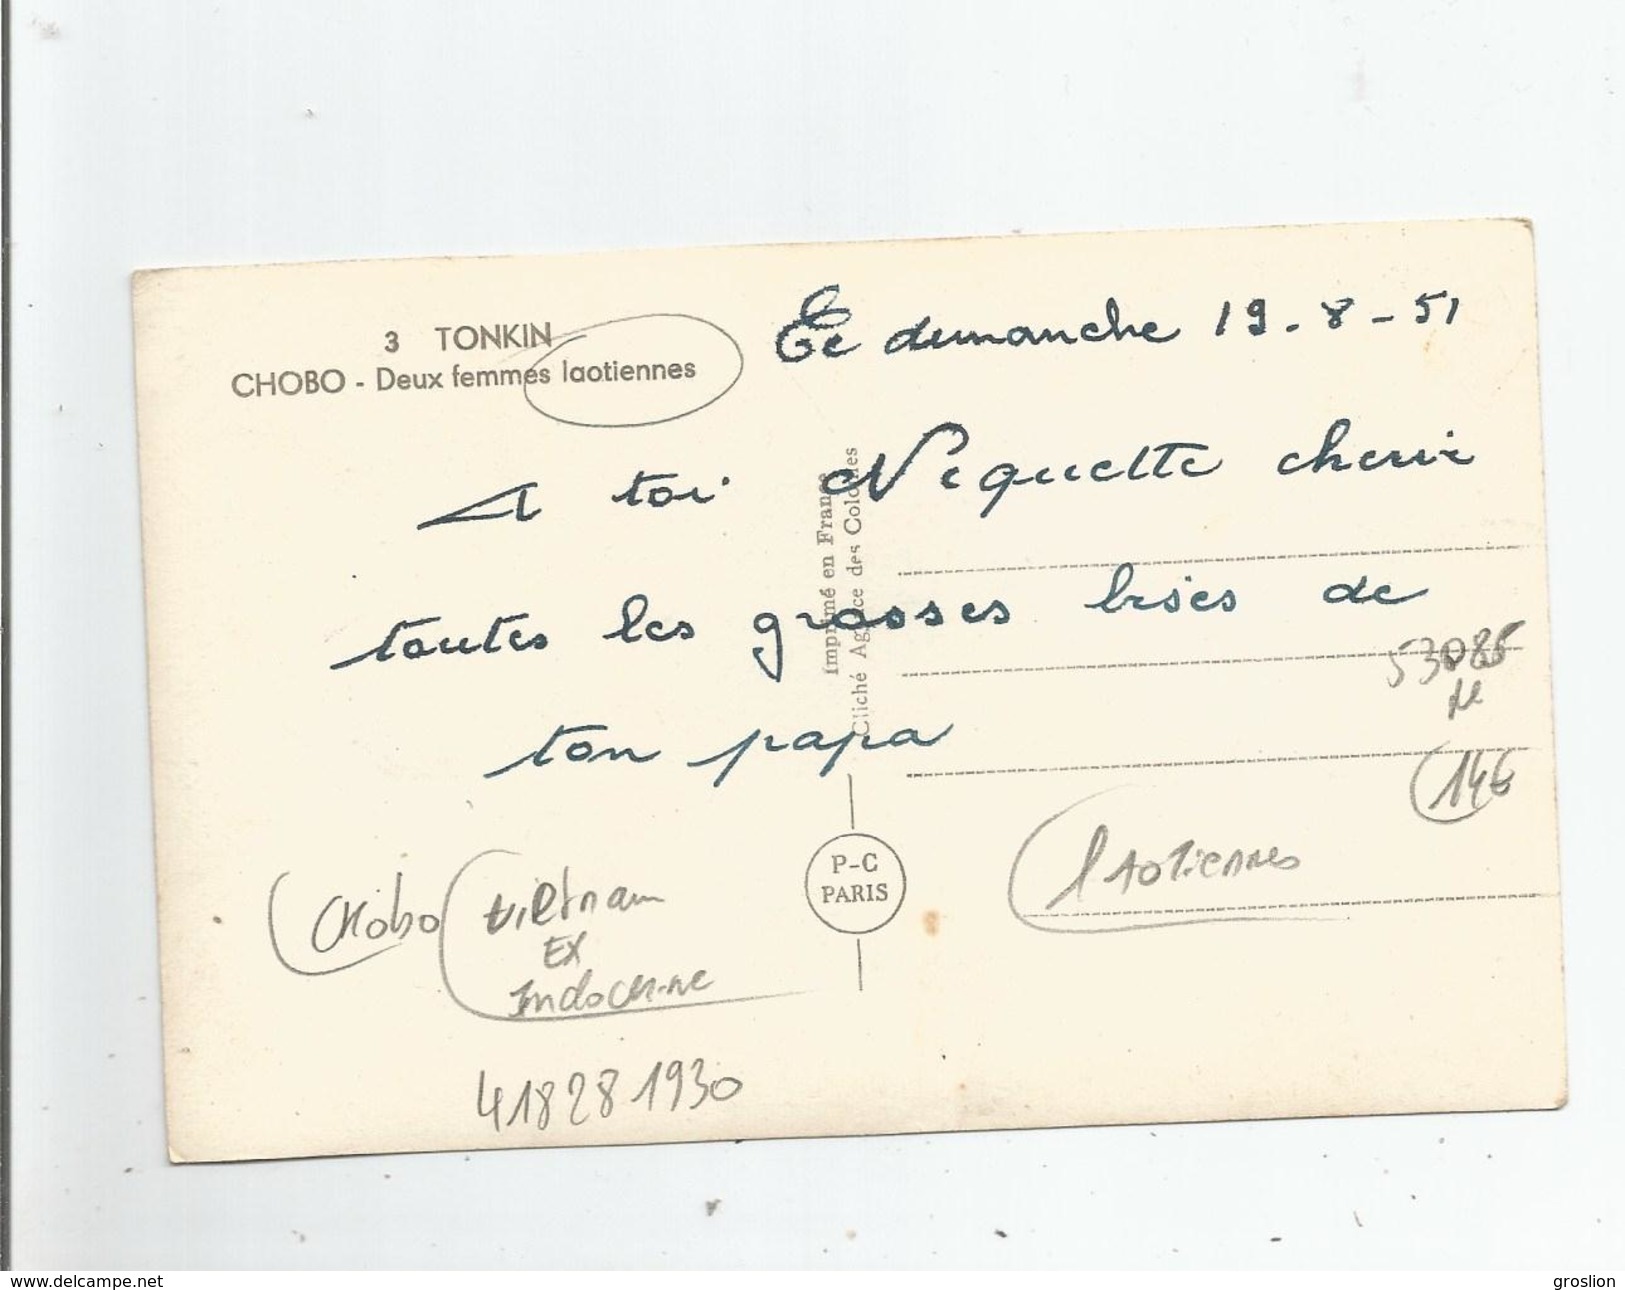 3 TONKIN
CHOBO - Deux femmes laotiennes
Le dimanche 19-8-51
A toi Nequette cherie
toutes les grosses bises de
ton papa
Imprimé en France
Cliché Agence des Colonies
P-C
PARIS
53085
146
laotiennes
Chobo
Vietnam
EX
Indochine
41828 1930
www.delcampe.net
groslion